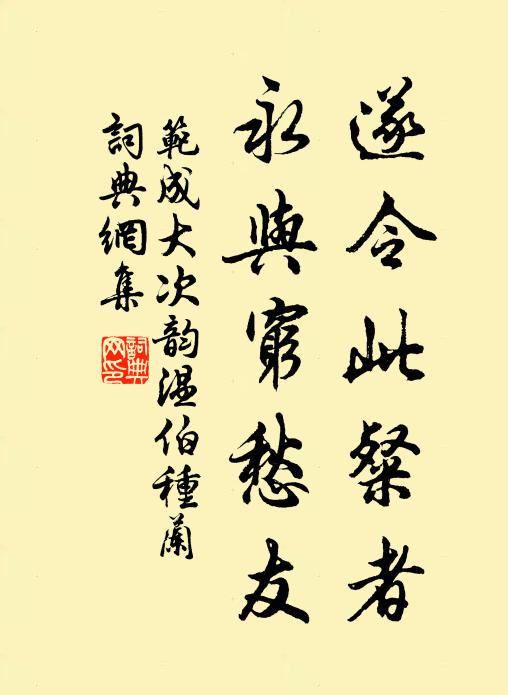 遂令此粲者
永與窮愁友
範成大次韵温伯種蘭
詞典網集
詞典網印